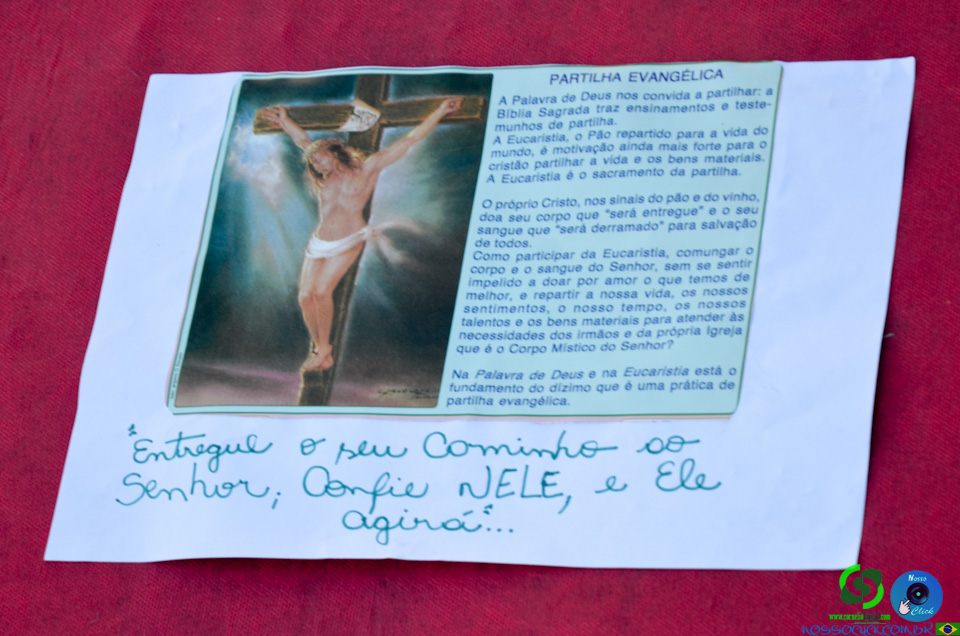 PARTILHA EVANGÉLICA
A Palavra de Deus nos convida a partilhar: a
Bíblia Sagrada traz ensinamentos e teste-
munhos de partilha.
A Eucaristia, o Pão repartido para a vida do
mundo, é motivação ainda mais forte para o
cristão partilhar a vida e os bens materiais.
A Eucaristia é o sacramento da partilha.
O próprio Cristo, nos sinais do pão e do vinho,
doa seu corpo que "será entregue" e o seu
sangue que "será derramado" para salvação
de todos.
Como participar da Eucaristia, comungar o
corpo e o sangue do Senhor, sem se sentir
impelido a doar por amor o que temos de
melhor, e repartir a nossa vida, os nossos
sentimentos, o nosso tempo, os nossos
talentos e os bens materiais para atender às
necessidades dos irmãos e da própria Igreja
que é o Corpo Místico do Senhor?
Na Palavra de Deus e na Eucaristia está o
fundamento do dízimo que é uma prática de
partilha evangélica.
"Entregue o seu Caminho ao
Senhor; Confie NELE, e Ele
agirá"...
Nosso
Click